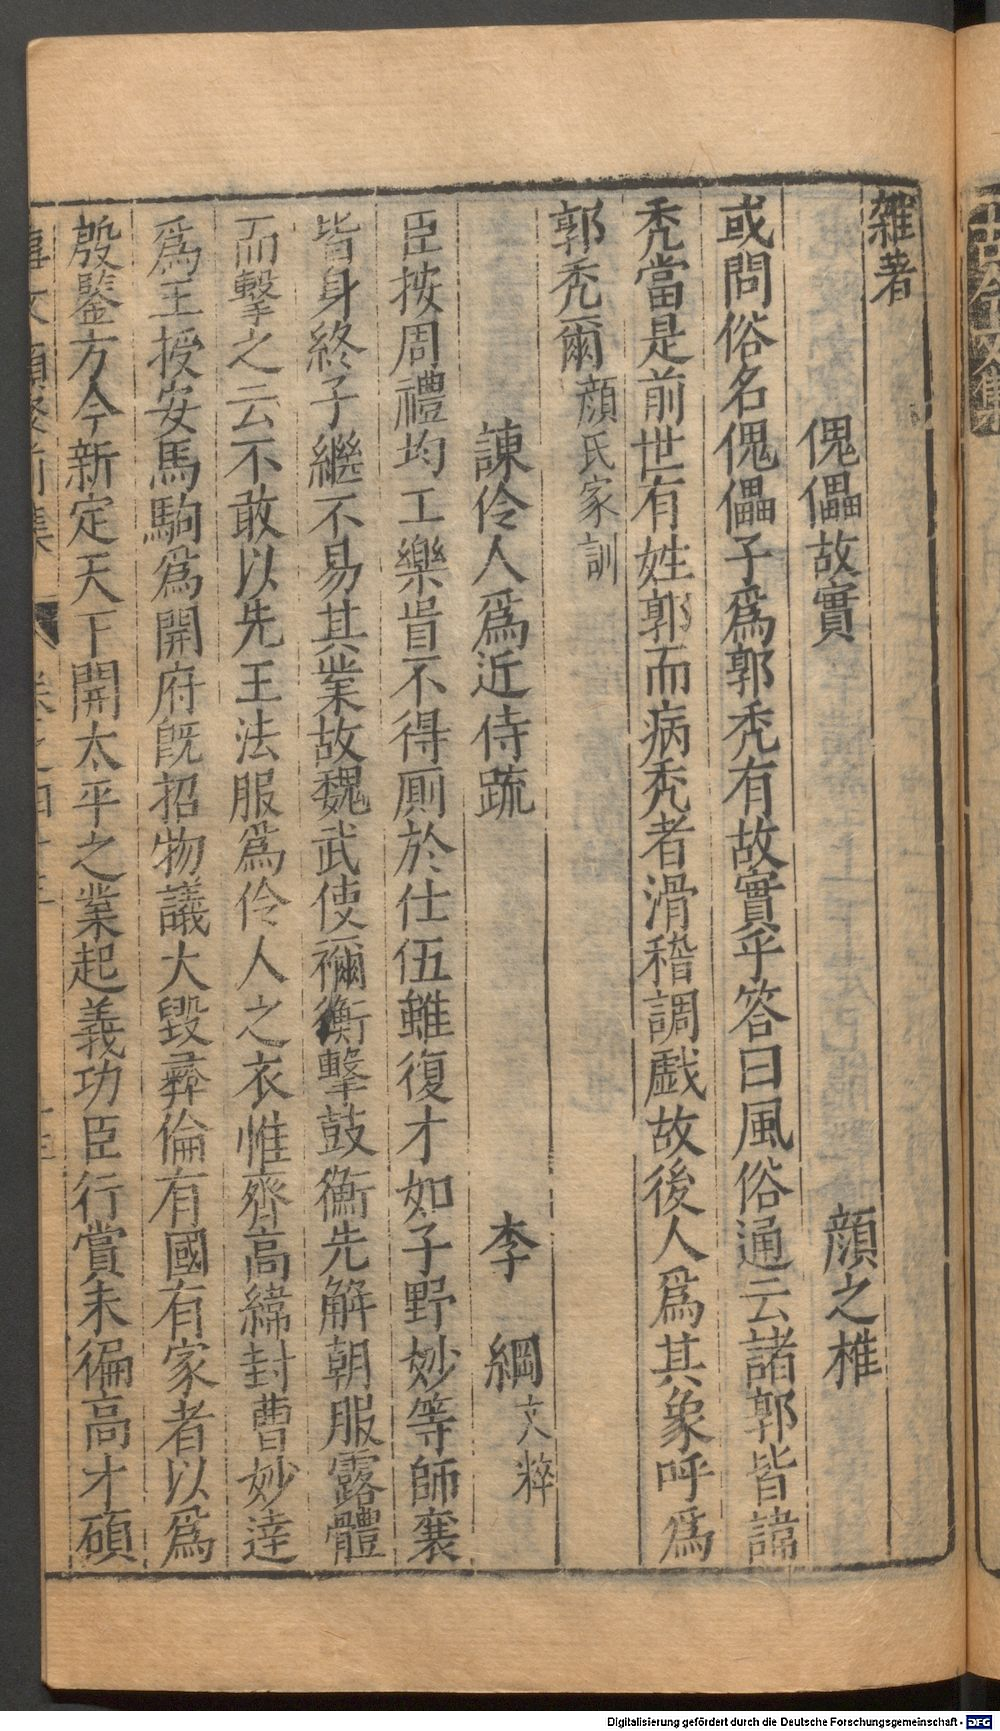 雜著
傀儡故實 顔之椎
或問俗名傀儡子爲郭禿有故實乎答曰風俗通云諸郭皆諱
禿當是前世有姓郭而病禿者滑稽調戲故後人爲其象呼爲
郭禿爾顔氏家訓
諫伶人爲近侍疏 李綱文粹
臣按周禮均工樂胥不得厠於仕伍雖復才如子野妙等師襄
皆身終子繼不易其業故魏武使禰衡擊鼓衡先解朝服露體
而擊之云不敢以先王法服爲伶人之衣惟齊高緯封曹妙逹
爲王授安馬駒爲開府旣招物議大毀彛倫有國有家者以爲
殷鑒方今新定天下開太平之業起義功臣行賞未徧高才碩
事文類聚前集 卷之四十三
Digitalisierung gefördert durch die Deutsche Forschungsgemeinschaft - DFG